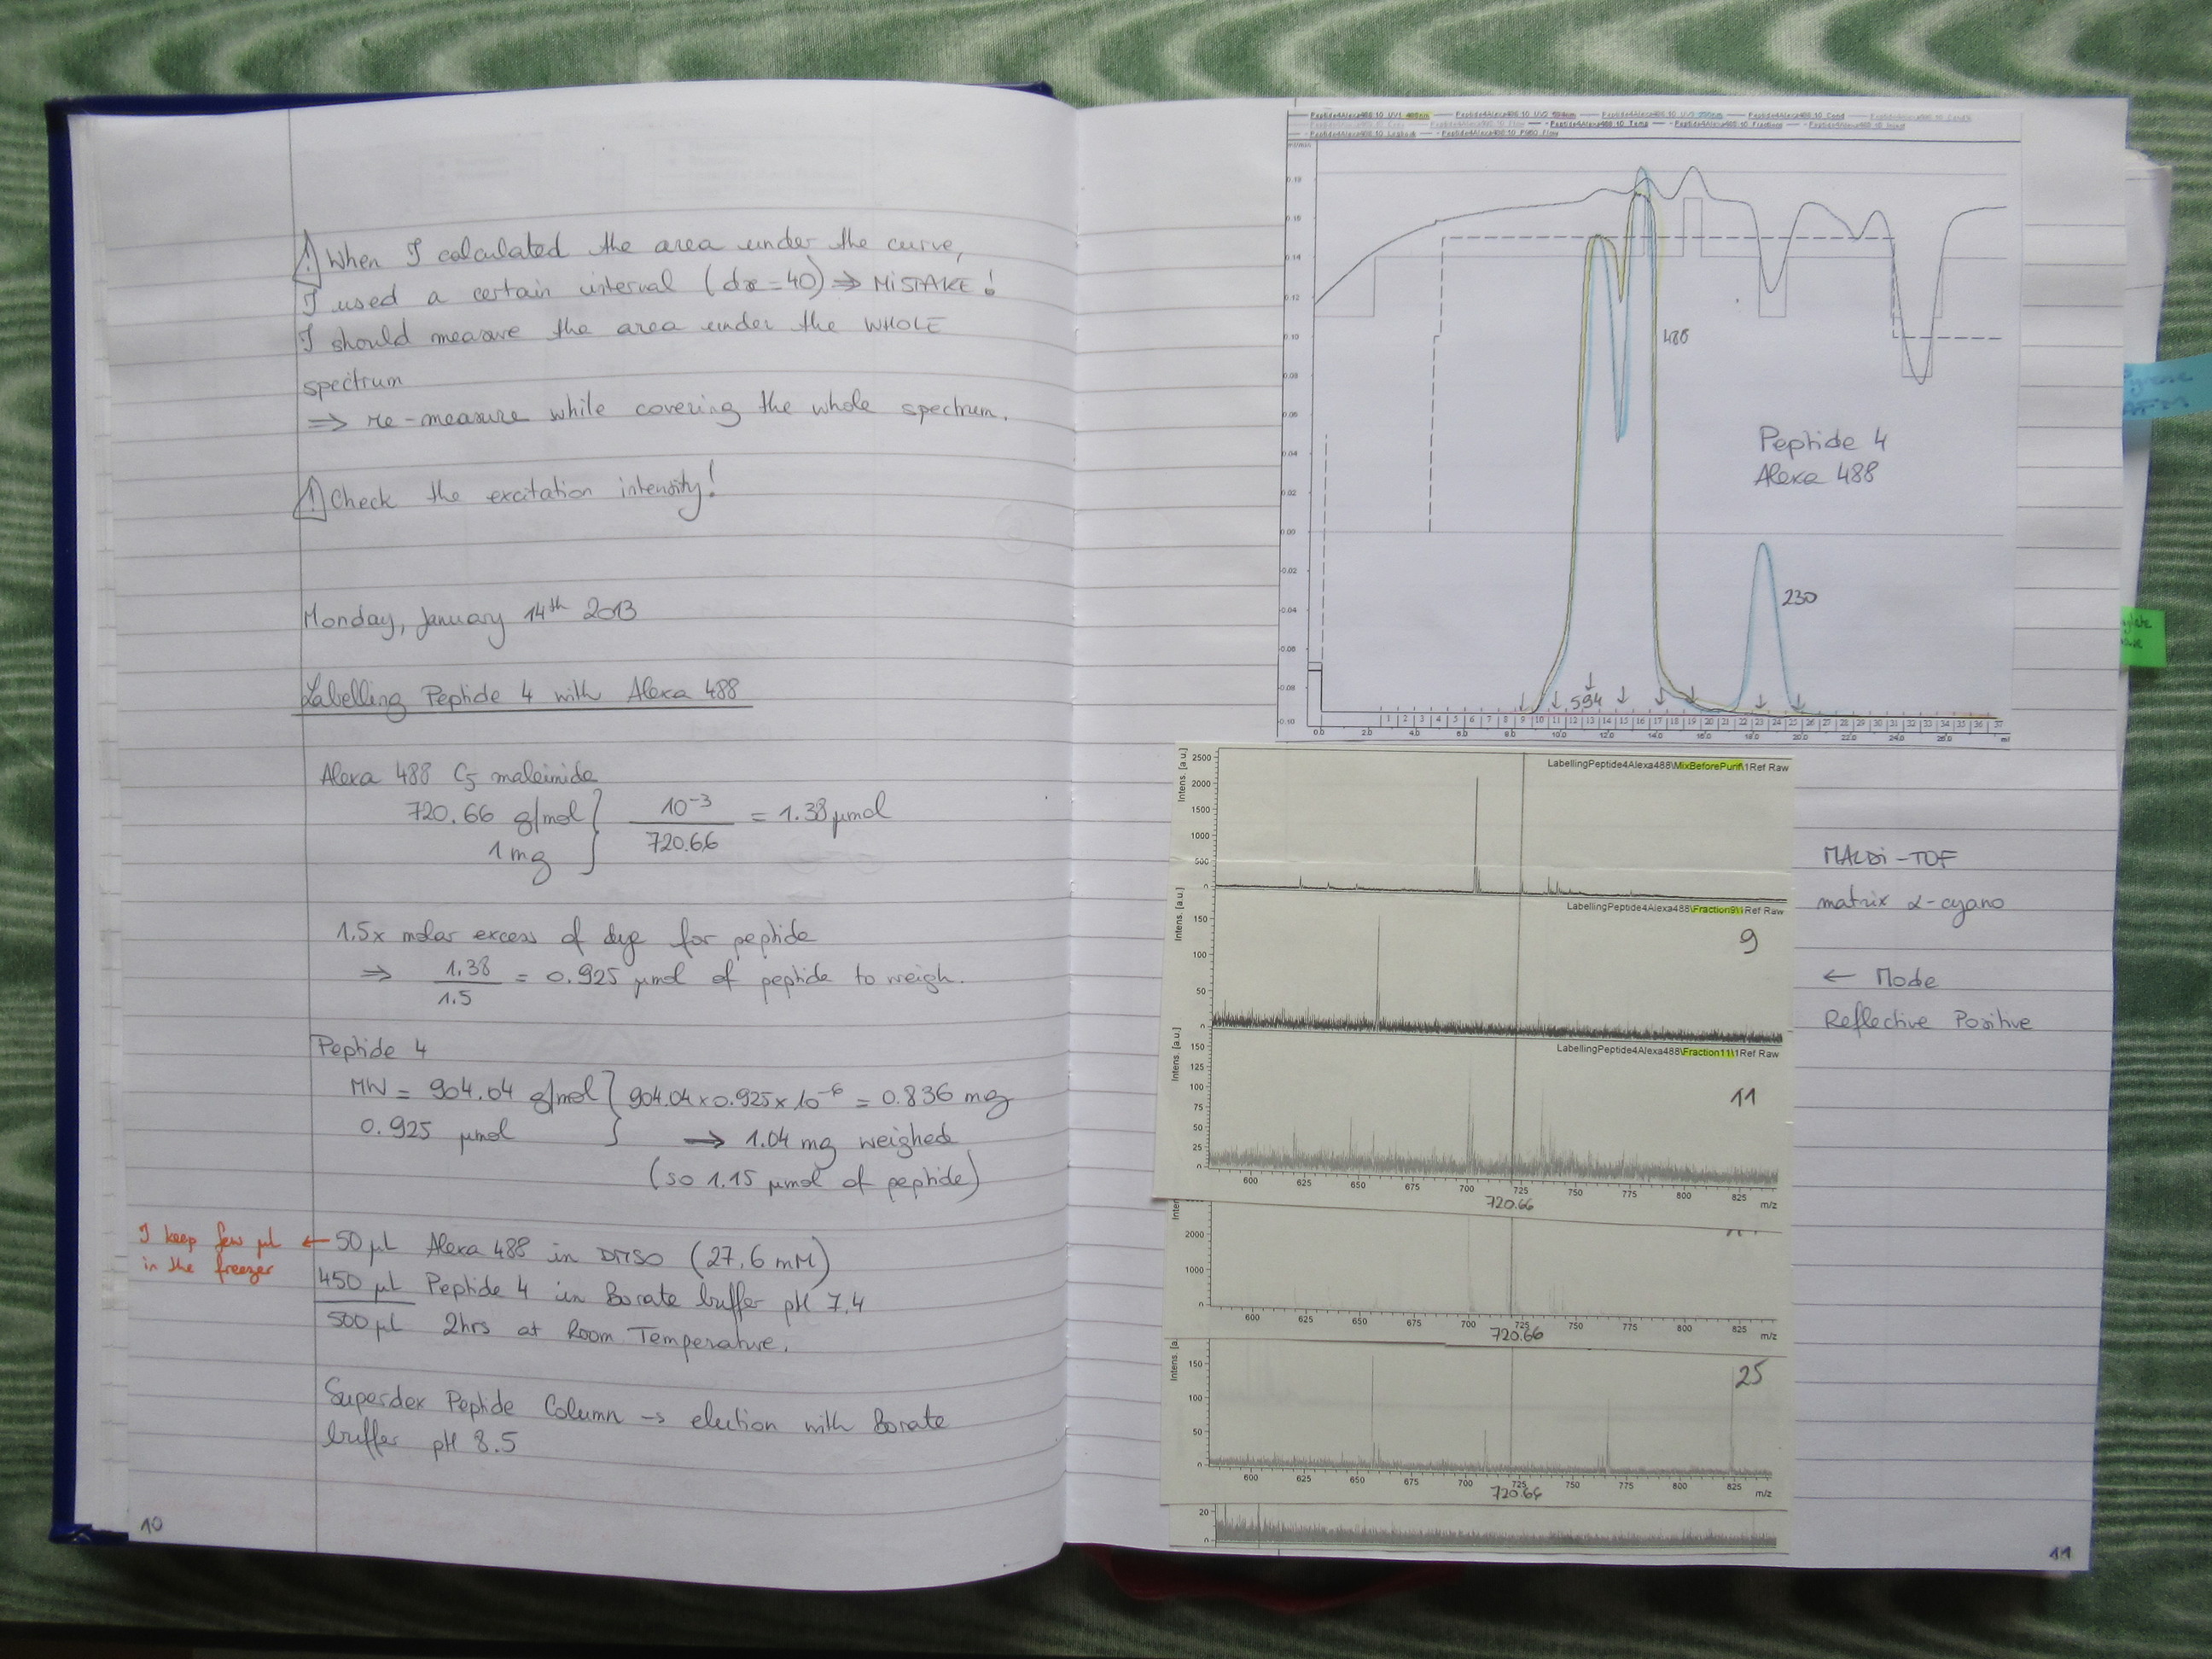 ⚠ When I calculated the area under the curve,
I used a certain interval (dx = 40) ⇒ MiSTAKE!
I should measure the area under the WHOLE
spectrum
⇒ re-measure while covering the whole spectrum.
⚠ Check the excitation intensity!
Monday, January 14th 2013
Labelling Peptide 4 with Alexa 488
Alexa 488 C5 maleimide
720.66 g/mol } 10^-3 / 720.66 = 1.38 µmol
1 mg
1.5x molar excess of dye for peptide
⇒ 1.38 / 1.5 = 0.925 µmol of peptide to weigh.
Peptide 4
MW = 904.04 g/mol } 904.04 x 0.925 x 10^-6 = 0.836 mg
0.925 µmol → 1.04 mg weighed
(so 1.15 µmol of peptide)
I keep few µL ← 50 µL Alexa 488 in DMSO (27.6 mM)
in the freezer
450 µL Peptide 4 in Borate buffer pH 7.4
500 µL 2hrs at Room Temperature.
Superdex Peptide Column → elution with Borate
buffer pH 8.5
10
488
Peptide 4
Alexa 488
230
594
LabellingPeptide4Alexa488\MixBeforePurif\1Ref Raw
Intens. [a.u.]
2500
2000
1500
1000
500
0
LabellingPeptide4Alexa488\Fraction9\1Ref Raw
9
Intens. [a.u.]
150
100
50
0
LabellingPeptide4Alexa488\Fraction11\1Ref Raw
11
Intens. [a.u.]
150
125
100
75
50
25
0
600 625 650 675 700 725 750 775 800 825
720.66 m/z
2000
1000
0
600 625 650 675 700 725 750 775 800 825
720.66 m/z
25
150
100
50
0
600 625 650 675 700 725 750 775 800 825
720.66 m/z
20
0
MALDi-TOF
matrix α-cyano
← Mode
Reflective Positive
11